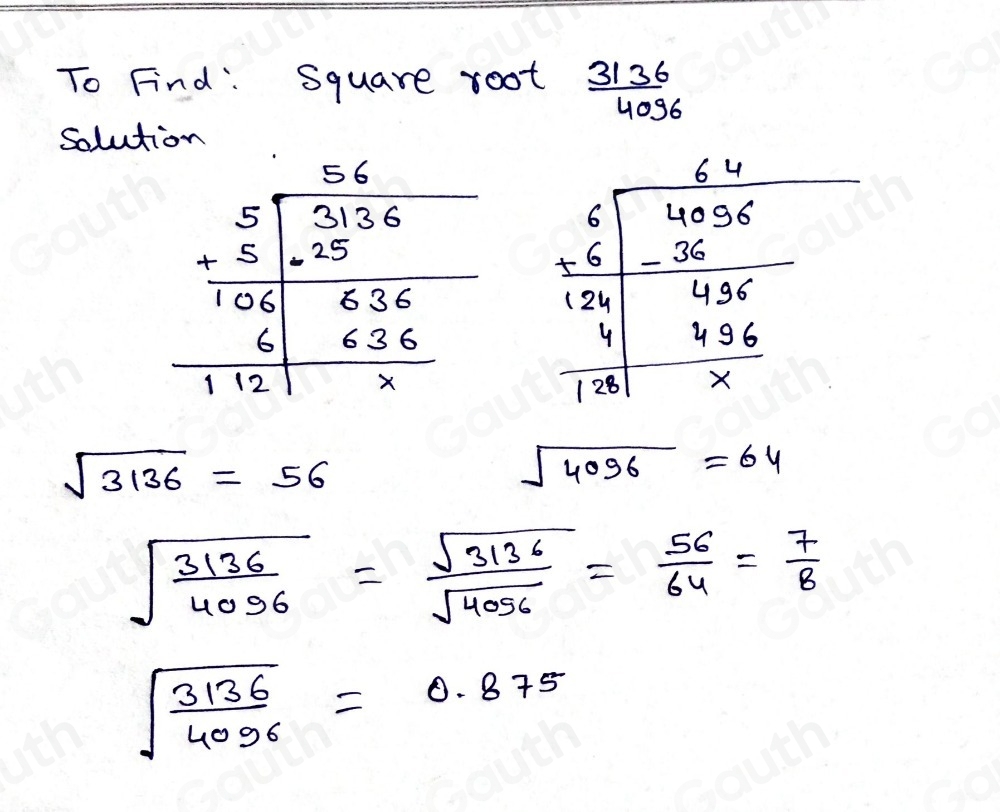 To Find: Square root 3136/4096
Solution
56
5 | 3136
+ 5 | - 25
106 | 636
6 | 636
112 | x
64
6 | 4096
+ 6 | - 36
124 | 496
4 | 496
128 | x
√3136 = 56
√4096 = 64
√(3136/4096) = √3136/√4096 = 56/64 = 7/8
√(3136/4096) = 0.875
Gauth